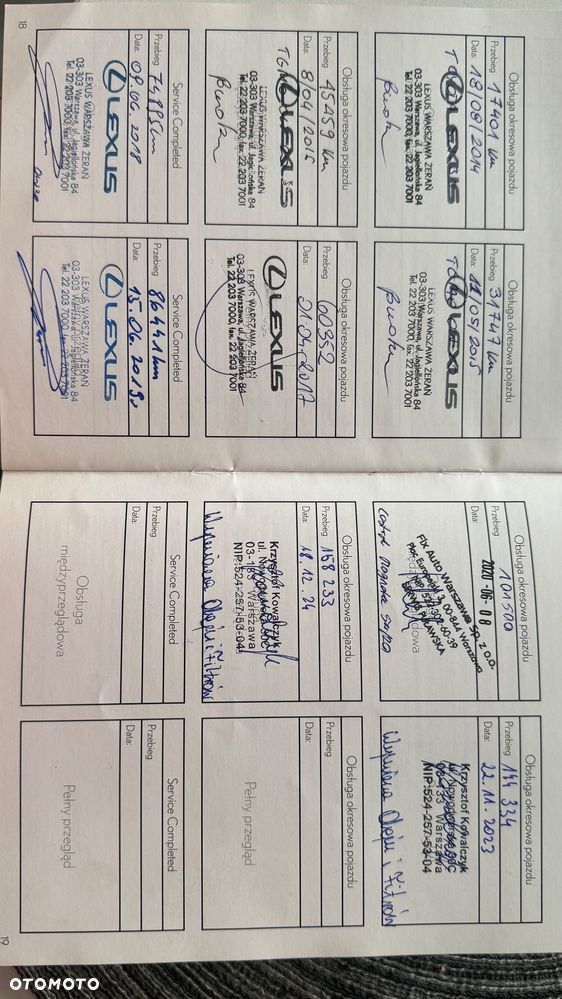 Obsługa okresowa pojazdu
Przebieg 17401 km
Data: 18/08/2014
LEXUS
LEXUS WARSZAWA ŻERAŃ
03-303 Warszawa, ul. Jagiellońska 84
Tel. 22 203 7000, fax. 22 203 7001
Obsługa okresowa pojazdu
Przebieg 31747 km
Data: /05/2015
LEXUS
LEXUS WARSZAWA ŻERAŃ
03-303 Warszawa, ul. Jagiellońska 84
Tel. 22 203 7000, fax. 22 203 7001
Obsługa okresowa pojazdu
Przebieg 45459 km
Data:
LEXUS
LEXUS WARSZAWA ŻERAŃ
03-303 Warszawa, ul. Jagiellońska 84
Tel. 22 203 7000, fax. 22 203 7001
Obsługa okresowa pojazdu
Przebieg 60352
Data: 21.04.2017
LEXUS
LEXUS WARSZAWA ŻERAŃ
03-303 Warszawa, ul. Jagiellońska 84
Tel. 22 203 7000, fax. 22 203 7001
Service Completed
Przebieg
Data: 09.06.2018
LEXUS
LEXUS WARSZAWA ŻERAŃ
03-303 Warszawa, ul. Jagiellońska 84
Tel. 22 203 7000, fax. 22 203 7001
Service Completed
Przebieg 86441 km
Data: 15.06.2019
LEXUS
LEXUS WARSZAWA ŻERAŃ
03-303 Warszawa, ul. Jagiellońska 84
Tel. 22 203 7000, fax. 22 203 7001
18
Obsługa okresowa pojazdu
Przebieg 101500
Data: 2020 -06- 08
FIX Auto Warszawa sp. z o.o.
00-844 Warszawa
Obsługa okresowa pojazdu
Przebieg 144 334
Data: 22.11.2023
Krzysztof Kowalczyk
03-133 Warszawa
NIP:524-257-53-04
Wymiana Oleju i Filtrów
Obsługa okresowa pojazdu
Przebieg 158 233
Data: 18.12.24
Krzysztof Kowalczyk
03-133 Warszawa
NIP:524-257-53-04
Wymiana Oleju i Filtrów
Obsługa okresowa pojazdu
Przebieg
Data:
Pełny przegląd
Service Completed
Przebieg
Data:
Obsługa
międzyprzeglądowa
Service Completed
Przebieg
Data:
Pełny przegląd
19
OTOMOTO